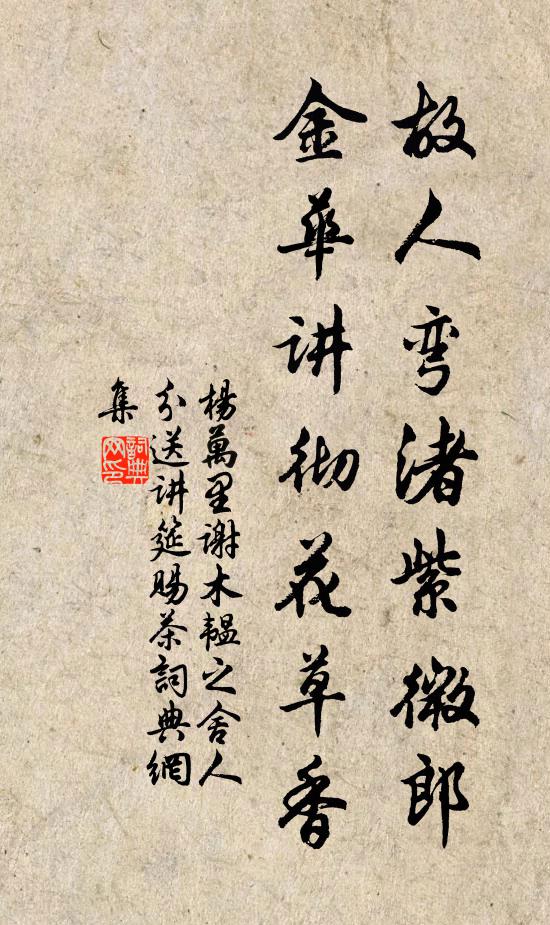 故人弯渚紫微郎
金華讲彻花草香
楊萬里谢木韫之舍人
分送讲筵賜茶詞典網
集
詞典
网印